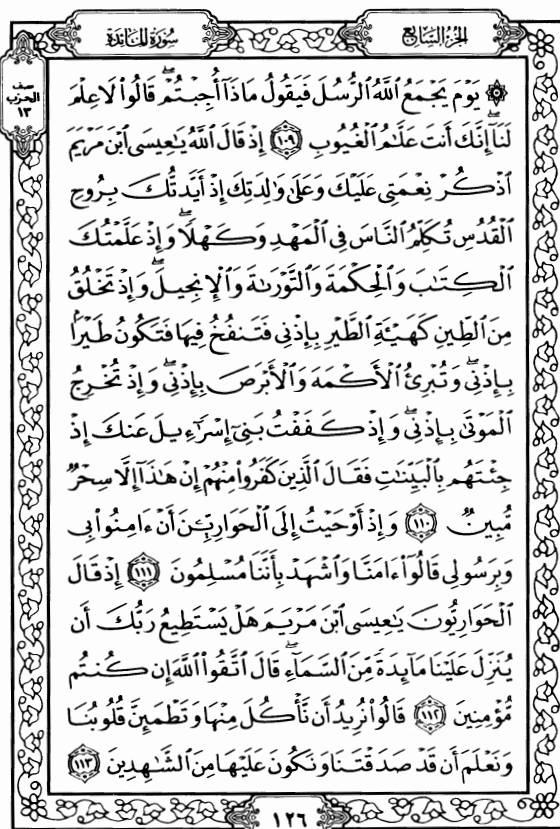 سورة المائدة
الجزء السابع
نصف
الحزب
١٣
۞ يَوْمَ يَجْمَعُ ٱللَّهُ ٱلرُّسُلَ فَيَقُولُ مَاذَآ أُجِبْتُمْ ۖ قَالُوا۟ لَا عِلْمَ
لَنَآ ۖ إِنَّكَ أَنتَ عَلَّٰمُ ٱلْغُيُوبِ ١٠٩ إِذْ قَالَ ٱللَّهُ يَٰعِيسَى ٱبْنَ مَرْيَمَ
ٱذْكُرْ نِعْمَتِى عَلَيْكَ وَعَلَىٰ وَٰلِدَتِكَ إِذْ أَيَّدتُّكَ بِرُوحِ
ٱلْقُدُسِ تُكَلِّمُ ٱلنَّاسَ فِى ٱلْمَهْدِ وَكَهْلًا ۖ وَإِذْ عَلَّمْتُكَ
ٱلْكِتَٰبَ وَٱلْحِكْمَةَ وَٱلتَّوْرَىٰةَ وَٱلْإِنجِيلَ ۖ وَإِذْ تَخْلُقُ
مِنَ ٱلطِّينِ كَهَيْـَٔةِ ٱلطَّيْرِ بِإِذْنِى فَتَنفُخُ فِيهَا فَتَكُونُ طَيْرًۢا
بِإِذْنِى ۖ وَتُبْرِئُ ٱلْأَكْمَهَ وَٱلْأَبْرَصَ بِإِذْنِى ۖ وَإِذْ تُخْرِجُ
ٱلْمَوْتَىٰ بِإِذْنِى ۖ وَإِذْ كَفَفْتُ بَنِىٓ إِسْرَٰٓءِيلَ عَنكَ إِذْ
جِئْتَهُم بِٱلْبَيِّنَٰتِ فَقَالَ ٱلَّذِينَ كَفَرُوا۟ مِنْهُمْ إِنْ هَٰذَآ إِلَّا سِحْرٌ
مُّبِينٌ ١١٠ وَإِذْ أَوْحَيْتُ إِلَى ٱلْحَوَارِيِّـۧنَ أَنْ ءَامِنُوا۟ بِى
وَبِرَسُولِى قَالُوٓا۟ ءَامَنَّا وَٱشْهَدْ بِأَنَّنَا مُسْلِمُونَ ١١١ إِذْ قَالَ
ٱلْحَوَارِيُّونَ يَٰعِيسَى ٱبْنَ مَرْيَمَ هَلْ يَسْتَطِيعُ رَبُّكَ أَن
يُنَزِّلَ عَلَيْنَا مَآئِدَةً مِّنَ ٱلسَّمَآءِ ۖ قَالَ ٱتَّقُوا۟ ٱللَّهَ إِن كُنتُم
مُّؤْمِنِينَ ١١٢ قَالُوا۟ نُرِيدُ أَن نَّأْكُلَ مِنْهَا وَتَطْمَئِنَّ قُلُوبُنَا
وَنَعْلَمَ أَن قَدْ صَدَقْتَنَا وَنَكُونَ عَلَيْهَا مِنَ ٱلشَّٰهِدِينَ ١١٣
١٢٦